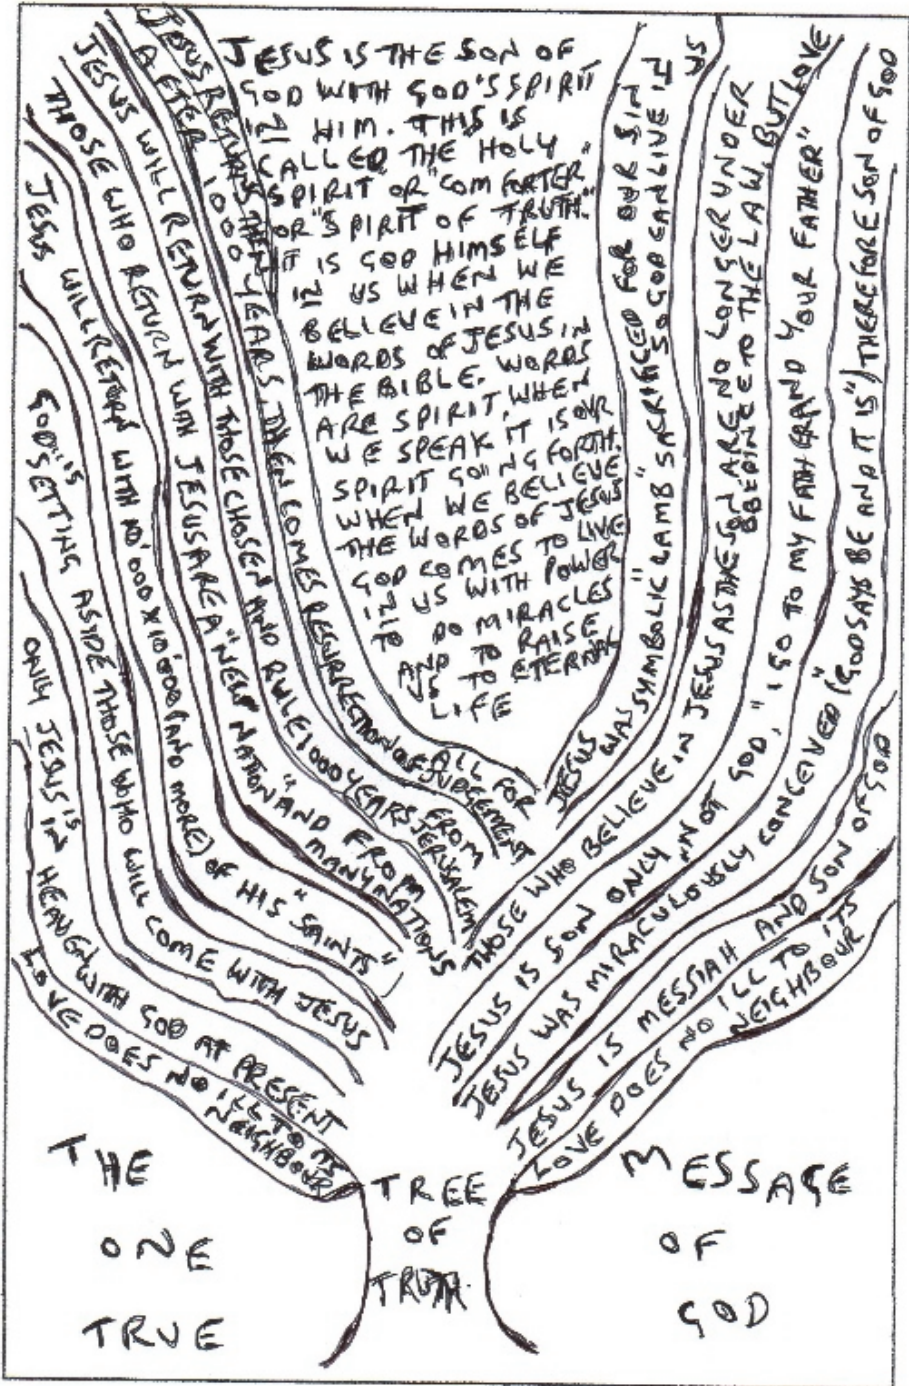 JESUS IS THE SON OF
GOD WITH GOD'S SPIRIT
IN HIM. THIS IS
CALLED THE HOLY
SPIRIT OR "COMFORTER"
OR "SPIRIT OF TRUTH."
IT IS GOD HIMSELF
IN US WHEN WE
BELIEVE IN THE
WORDS OF JESUS IN
THE BIBLE. WORDS
ARE SPIRIT, WHEN
WE SPEAK IT IS OUR
SPIRIT GOING FORTH.
WHEN WE BELIEVE
THE WORDS OF JESUS
GOD COMES TO LIVE
IN US WITH POWER
TO DO MIRACLES
AND TO RAISE
US TO ETERNAL
LIFE
JESUS RETURNS THEN
AFTER 1000 YEARS. THEN COMES RESURRECTION OF ALL FOR JUDGEMENT
JESUS WILL RETURN WITH THOSE CHOSEN AND RULE 1000 YEARS FROM JERUSALEM
THOSE WHO RETURN WITH JESUS ARE A "NEW NATION" AND FROM MANY NATIONS
JESUS WILL RETURN WITH 10'000 X 10'000 (AND MORE) OF HIS "SAINTS"
GOD IS SETTING ASIDE THOSE WHO WILL COME WITH JESUS
ONLY JESUS IS IN HEAVEN WITH GOD AT PRESENT
LOVE DOES NO ILL TO ITS NEIGHBOUR
JESUS WAS SYMBOLIC "LAMB" SACRIFICED FOR OUR SIN SO GOD CAN LIVE IN US
THOSE WHO BELIEVE IN JESUS AS THE SON ARE NO LONGER UNDER
OBEDIENCE TO THE LAW, BUT LOVE
JESUS IS SON ONLY, NOT GOD, "I GO TO MY FATHER AND YOUR FATHER"
JESUS WAS MIRACULOUSLY CONCEIVED (GOD SAYS BE AND IT IS") THEREFORE SON OF GOD
JESUS IS MESSIAH AND SON OF GOD
LOVE DOES NO ILL TO ITS NEIGHBOUR
THE
ONE
TRUE
TREE
OF
TRUTH.
MESSAGE
OF
GOD